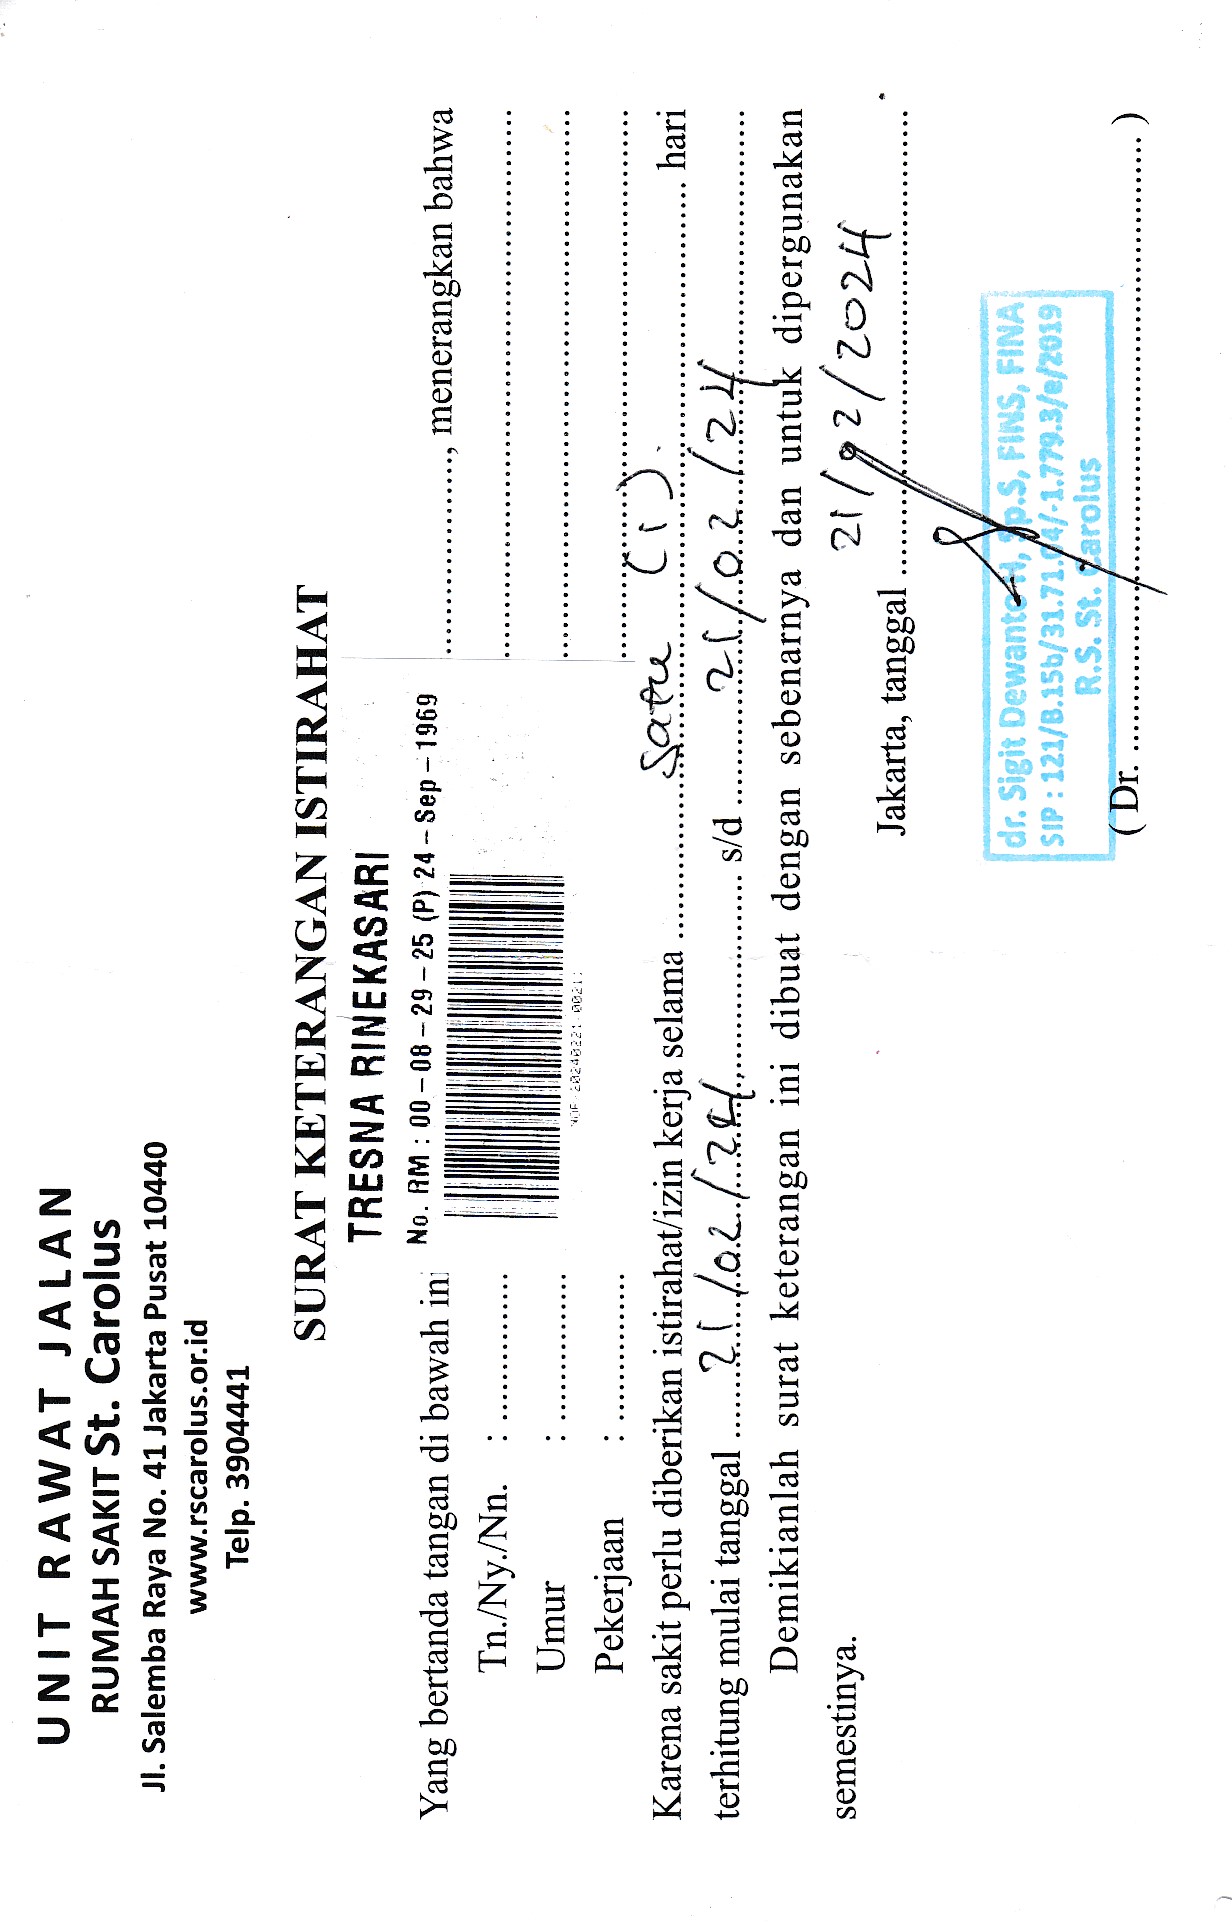 UNIT RAWAT JALAN
RUMAH SAKIT St. Carolus
Jl. Salemba Raya No. 41 Jakarta Pusat 10440
www.rscarolus.or.id
Telp. 3904441
SURAT KETERANGAN ISTIRAHAT
TRESNA RINEKASARI
No. RM : 00-08-29-25 (P) 24-Sep-1969
Yang bertanda tangan di bawah ini ...................., menerangkan bahwa
Tn./Ny./Nn. : ....................
Umur : ....................
Pekerjaan : ....................
Karena sakit perlu diberikan istirahat/izin kerja selama .......... Satu (1) .......... hari
terhitung mulai tanggal .......... 21/02/24 .......... s/d .......... 21/02/24 ..........
Demikianlah surat keterangan ini dibuat dengan sebenarnya dan untuk dipergunakan
semestinya.
Jakarta, tanggal .......... 21/02/2024 ..........
dr. Sigit Dewanto H, Sp.S, FINS, FINA
SIP : 121/B.15b/31.71.04/-1.779.3/e/2019
R.S. St. Carolus
( Dr. .................... )